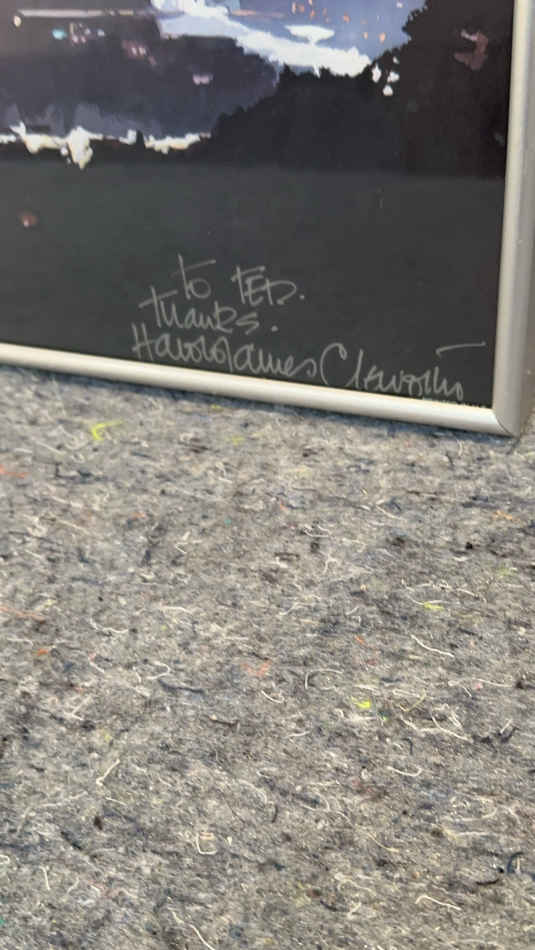 To TED.
Thanks.
Harold James Cleworth